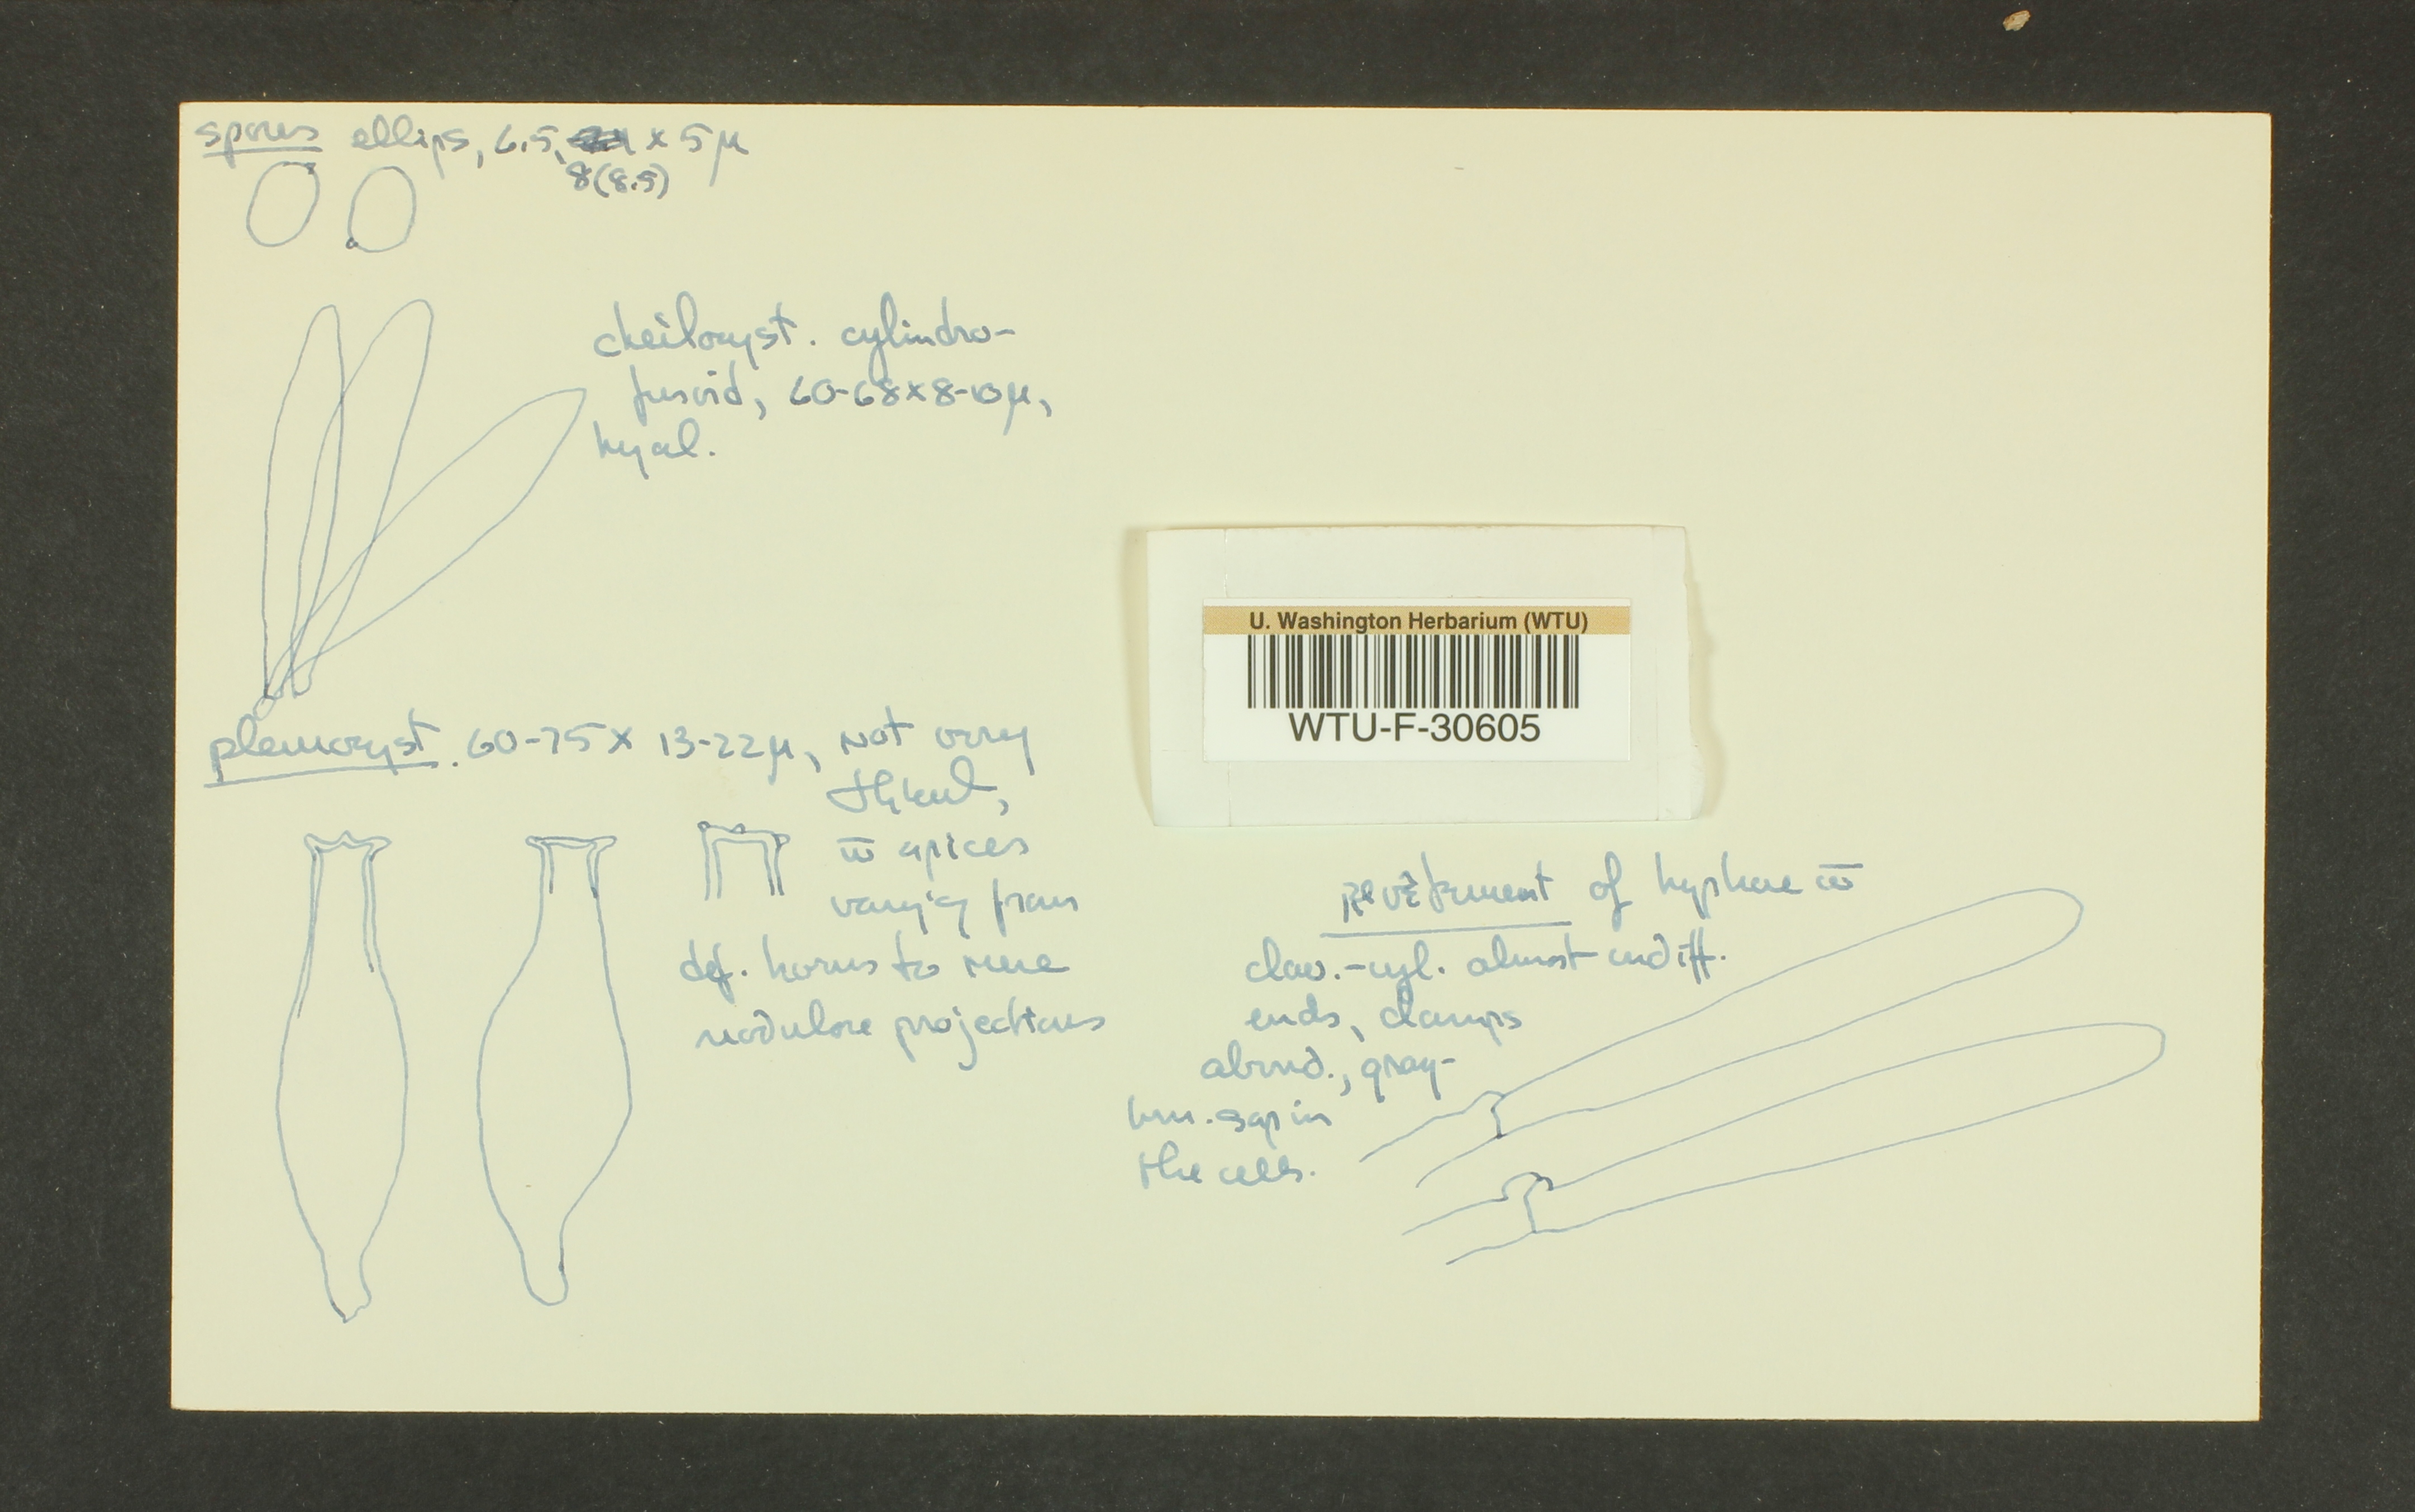 spores ellips, 6.5- x 5 µ
8(8.5)
cheilocyst. cylindro-
fusoid, 60-68x8-10µ,
hyal.
pleurocyst. 60-75 x 13-22µ, not very
thknd,
w̅ apices
varyi'g from
def. horns to mere
nodulose projections
U. Washington Herbarium (WTU)
WTU-F-30605
Revêtement of hyphae w̅
clav.-cyl. almost undiff.
ends, clamps
abund., gray-
brn. sap in
the cells.